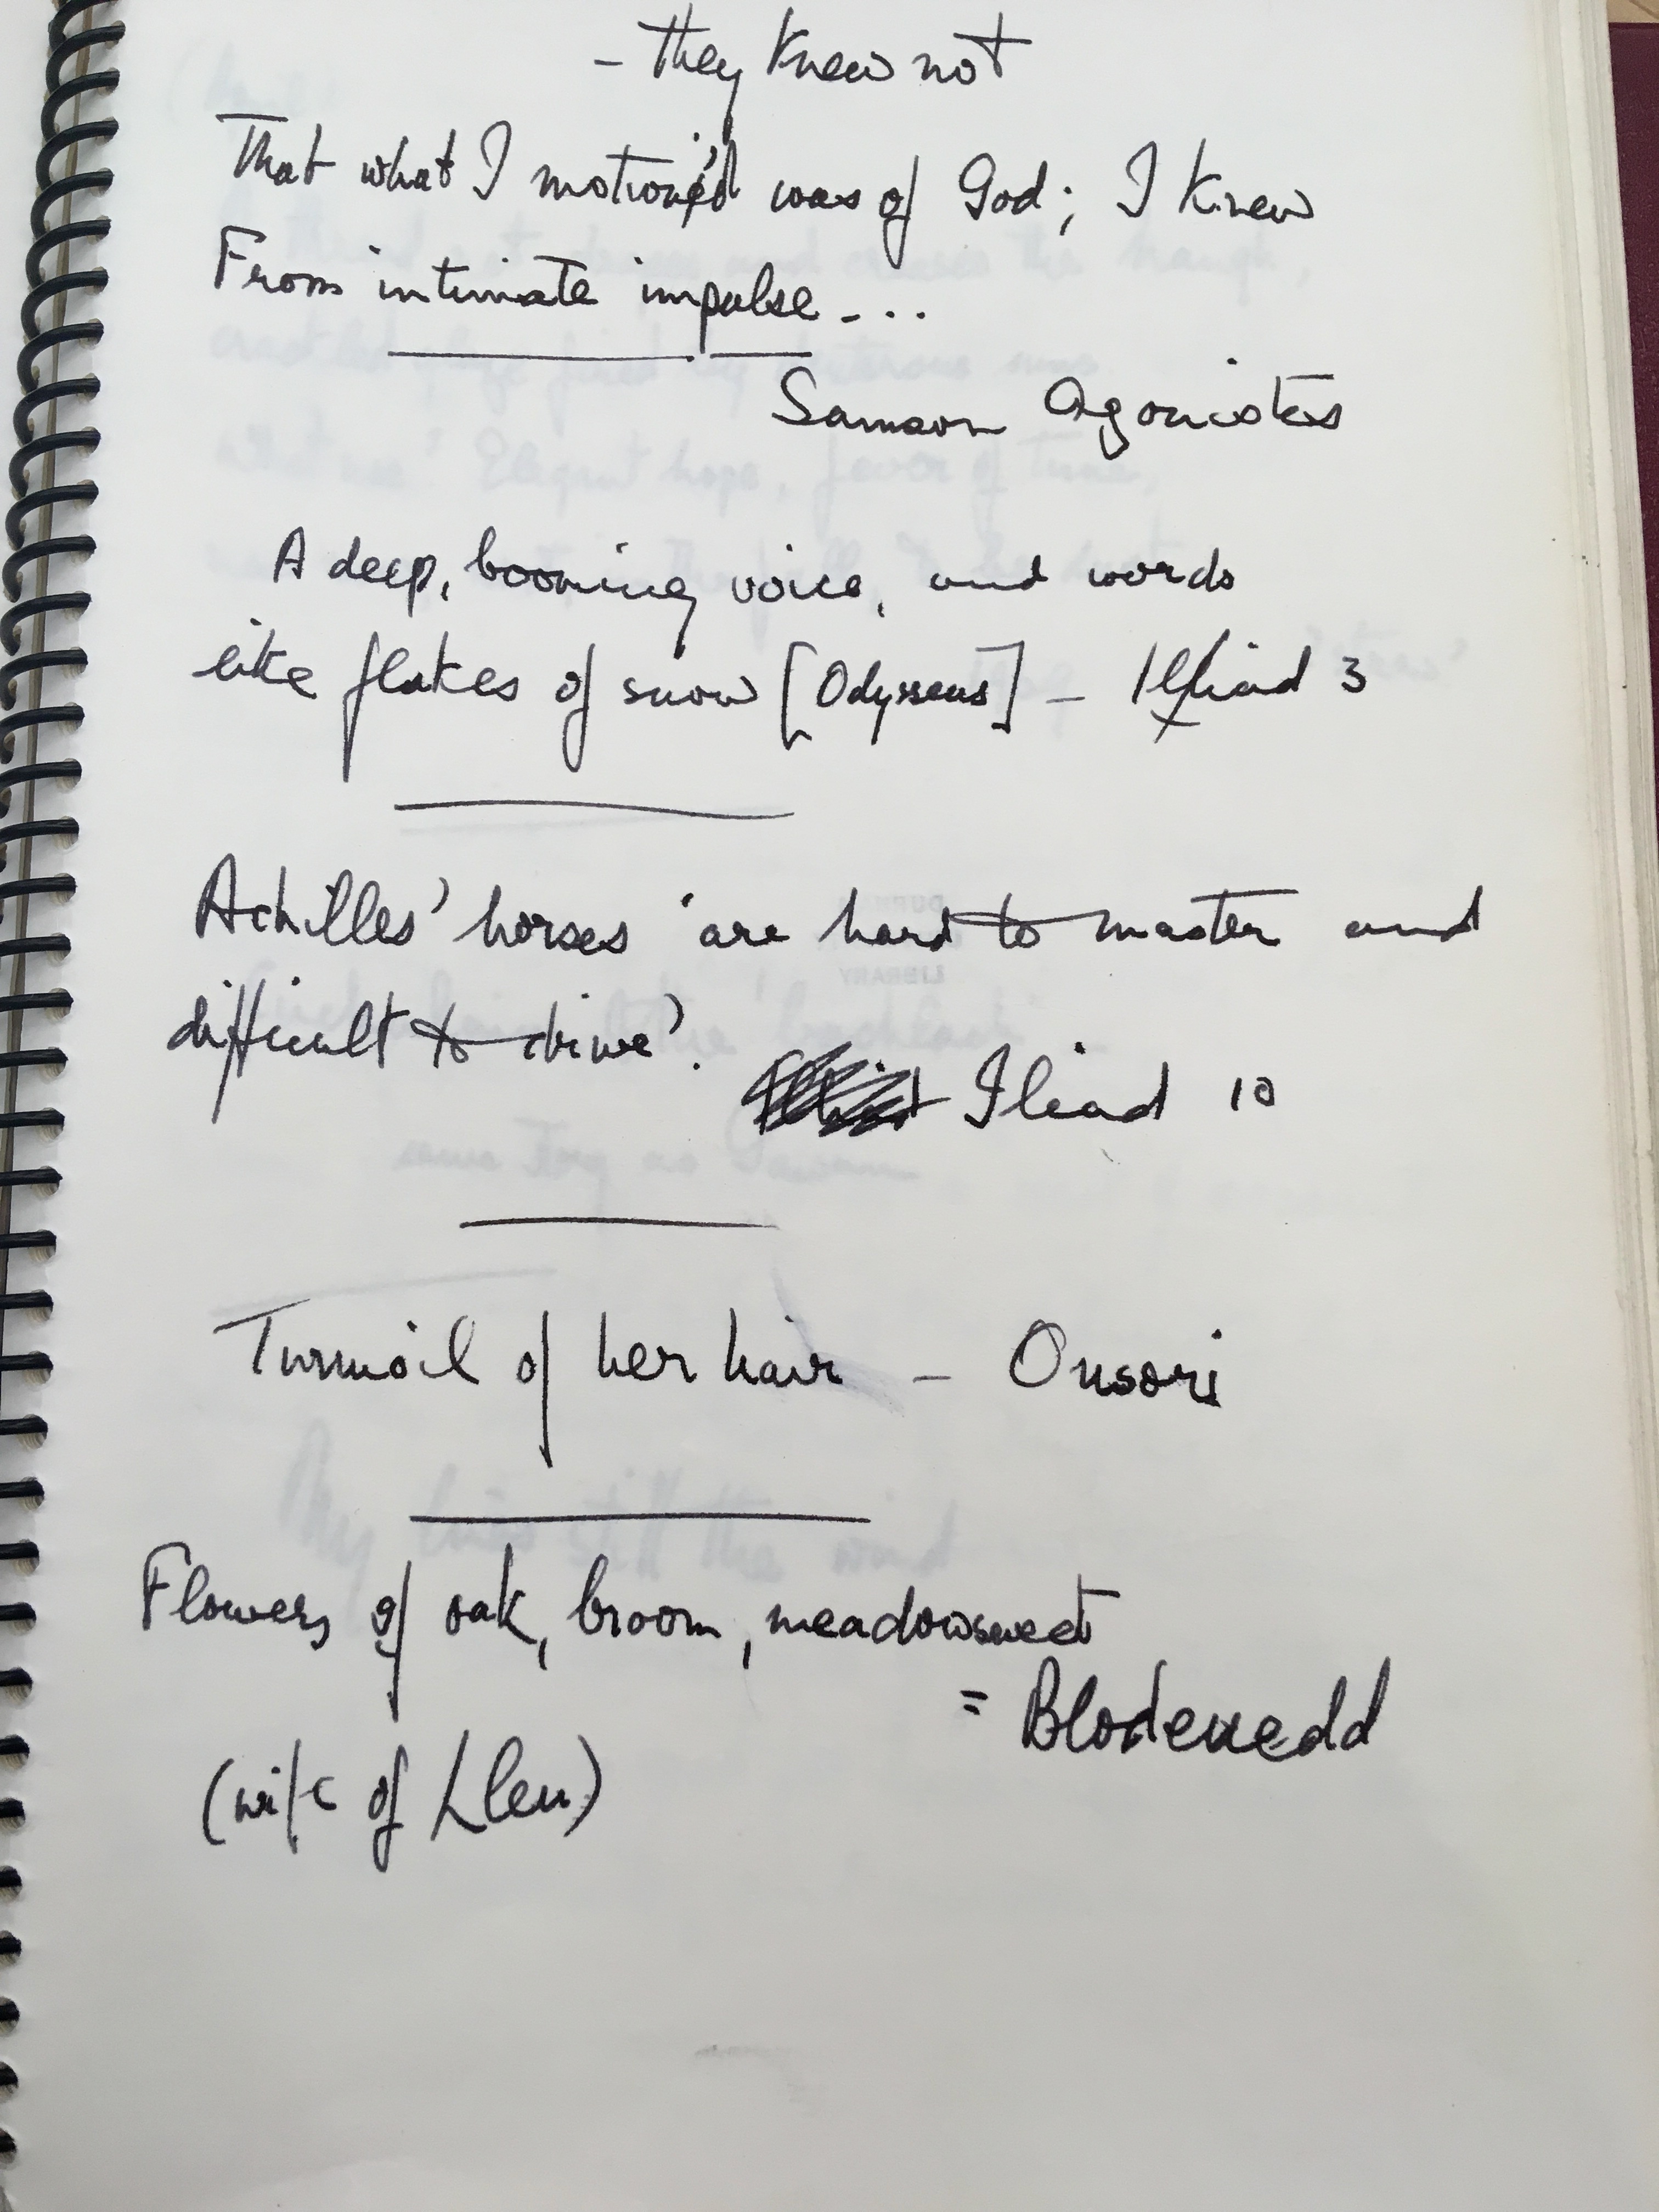 – they knew not
That what I motion'd was of God; I knew
From intimate impulse - ...
Samson Agonistes
A deep, booming voice, and words
like flakes of snow [Odysseus] – Iliad 3
Achilles' horses 'are hard to master and
difficult to drive'.
Iliad 10
Turmoil of her hair – Onsori
Flowers of oak, broom, meadowsweet
= Blodeuedd
(wife of Lleu)